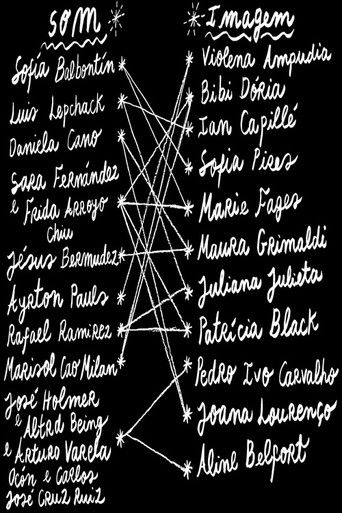 SOM
Sofía Balbontín
Luis Lepchack
Daniela Cano
Sara Fernández
e Frida Arroyo
Chiu
Jésus Bermudez
Ayrton Pauls
Rafael Ramirez
Marisol Cao Milan
José Holmer
e Altrd Being
e Arturo Varela
Ocón e Carlos
José Cruz Ruiz
Imagem
Violena Ampudia
Bibi Dória
Ian Capillé
Sofia Pires
Marie Fages
Maura Grimaldi
Juliana Julieta
Patrícia Black
Pedro Ivo Carvalho
Joana Lourenço
Aline Belfort